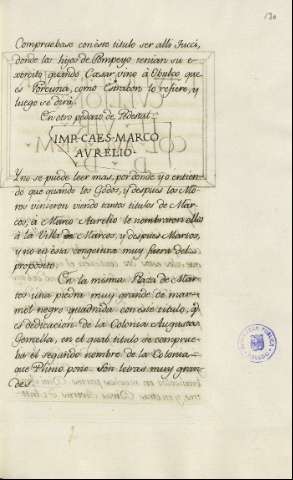 130
Compruebase con éste titulo ser alli Tucci,
donde los hijos de Pompeyo tenian su e-
xercito quando Cæsar vino á Obulco que
es Porcuna, como Estrabón lo refiere, y
luego se dirá.
En otro pedazo de Pedestal
IMP·CAES·MARCO
AVRELIO·
Y no se puede leer mas, por donde yo entien-
do que quando los Godos, y despues los Mo-
ros vinieron viendo tantos titulos de Mar-
cos, á Marco Aurelio le nombraron ellos
á la Villa de Marcos, y despues Martos,
y no es ésta congetura muy fuera del
proposito.
En la misma Plaza de Mar-
tos una piedra muy grande de mar-
mol negro quadrada con éste titulo, q.
es dedicacion de la Colonia Augusta
Gemella, en el qual titulo se comprue-
ba el segundo nombre de la Colonia
que Plinio pone. Son letras muy gran-
des.